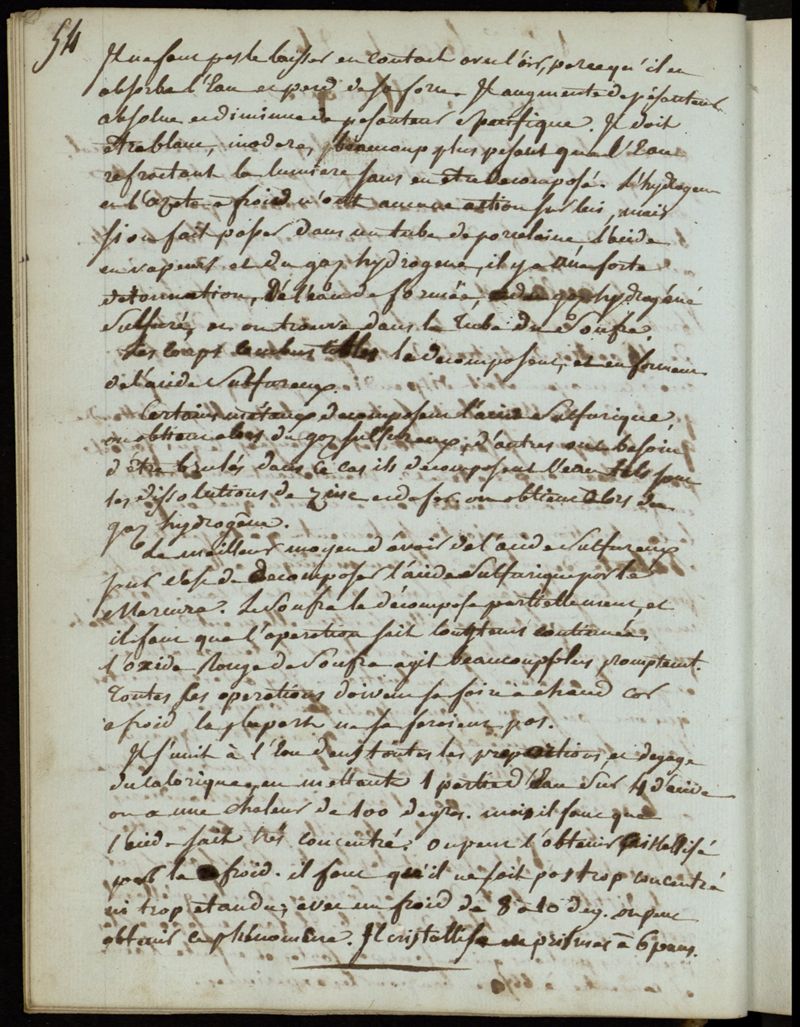 54
Il ne faut pas le laisser en contact avec l'air, parcequ'il en
absorbe l'Eau et perd de sa force. Il augmente de pésanteur
absolue et diminue de pesanteur Specifique. Il doit
etre blanc, inodore, beaucoup plus pesant que l'Eau
refractant la lumiere sans en etre decomposé. L'hydrogene
et l'azote a froid n'ont aucune action sur lui, mais
si on fait passer dans un tube de porcelaine l'acide
en vapeurs et du gaz hydrogene, il y a une forte
detonnation, De l'eau de formée, et du gaz hydrogéné
Sulfuré, et on trouve dans le Tube du Soufre.
Les corps combustibles le decomposent, et en forment
de l'acide Sulfureux.
Certains métaux decomposent l'acide Sulfurique,
on obtient alors du gaz sulfureux, d'autres ont besoin
d'être brulés, dans ce cas ils decomposent l'eau tels sont
les dissolutions de zinc et de fer, on obtient alors du
gaz hydrogêne.
Le meilleur moyen d'avoir de l'acide Sulfureux
pur c'est de Decomposer l'acide Sulfurique par le
Mercure. Le Soufre le décompose partiellement, et
il faut que l'operation soit longtems continuée,
l'oxide Rouge de Soufre agit beaucoup plus promptemt.
Toutes ses operations doivent se faire a chaud car
a froid la plupart ne se feroient pas.
Il s'unit à l'Eau dans toutes les proportions et degage
du calorique, en mettant 1 partie d'Eau sur 4 d'acide
on a une chaleur de 100 degrés. mais il faut que
l'acide soit très concentré. on peut l'obtenir cristallisé
par le froid. il faut qu'il ne soit pas trop concentré
ni trop etandu, avec un froid de 8 a 10 deg. on peut
obtenir ce phénomêne. Il cristallise en prismes à 6 pans.